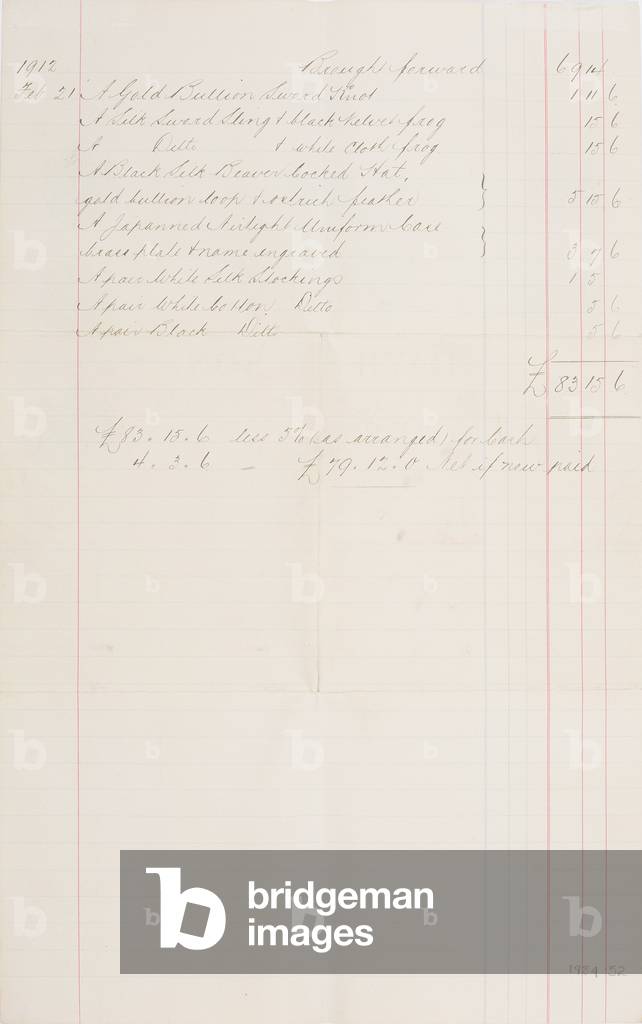 1912 Brought forward 69 14
Feb 21 A Gold Bullion Sword Knot 1 11 6
A Silk Sword Sling & black velvet frog 15 6
A Ditto & white cloth frog 15 6
A Black Silk Beaver Cocked Hat,
gold bullion loop & ostrich feather } 5 15 6
A Japanned Airtight Uniform Case
brass plate & name engraved } 3 7 6
A pair White Silk Stockings 1 5
A pair White Cotton Ditto 5 6
A pair Black Ditto 5 6
£ 83 15 6
£83.15.6 less 5% (as arranged) for Cash
4.3.6 – £79.12.0 Net if now paid
bridgeman
images
1984 52